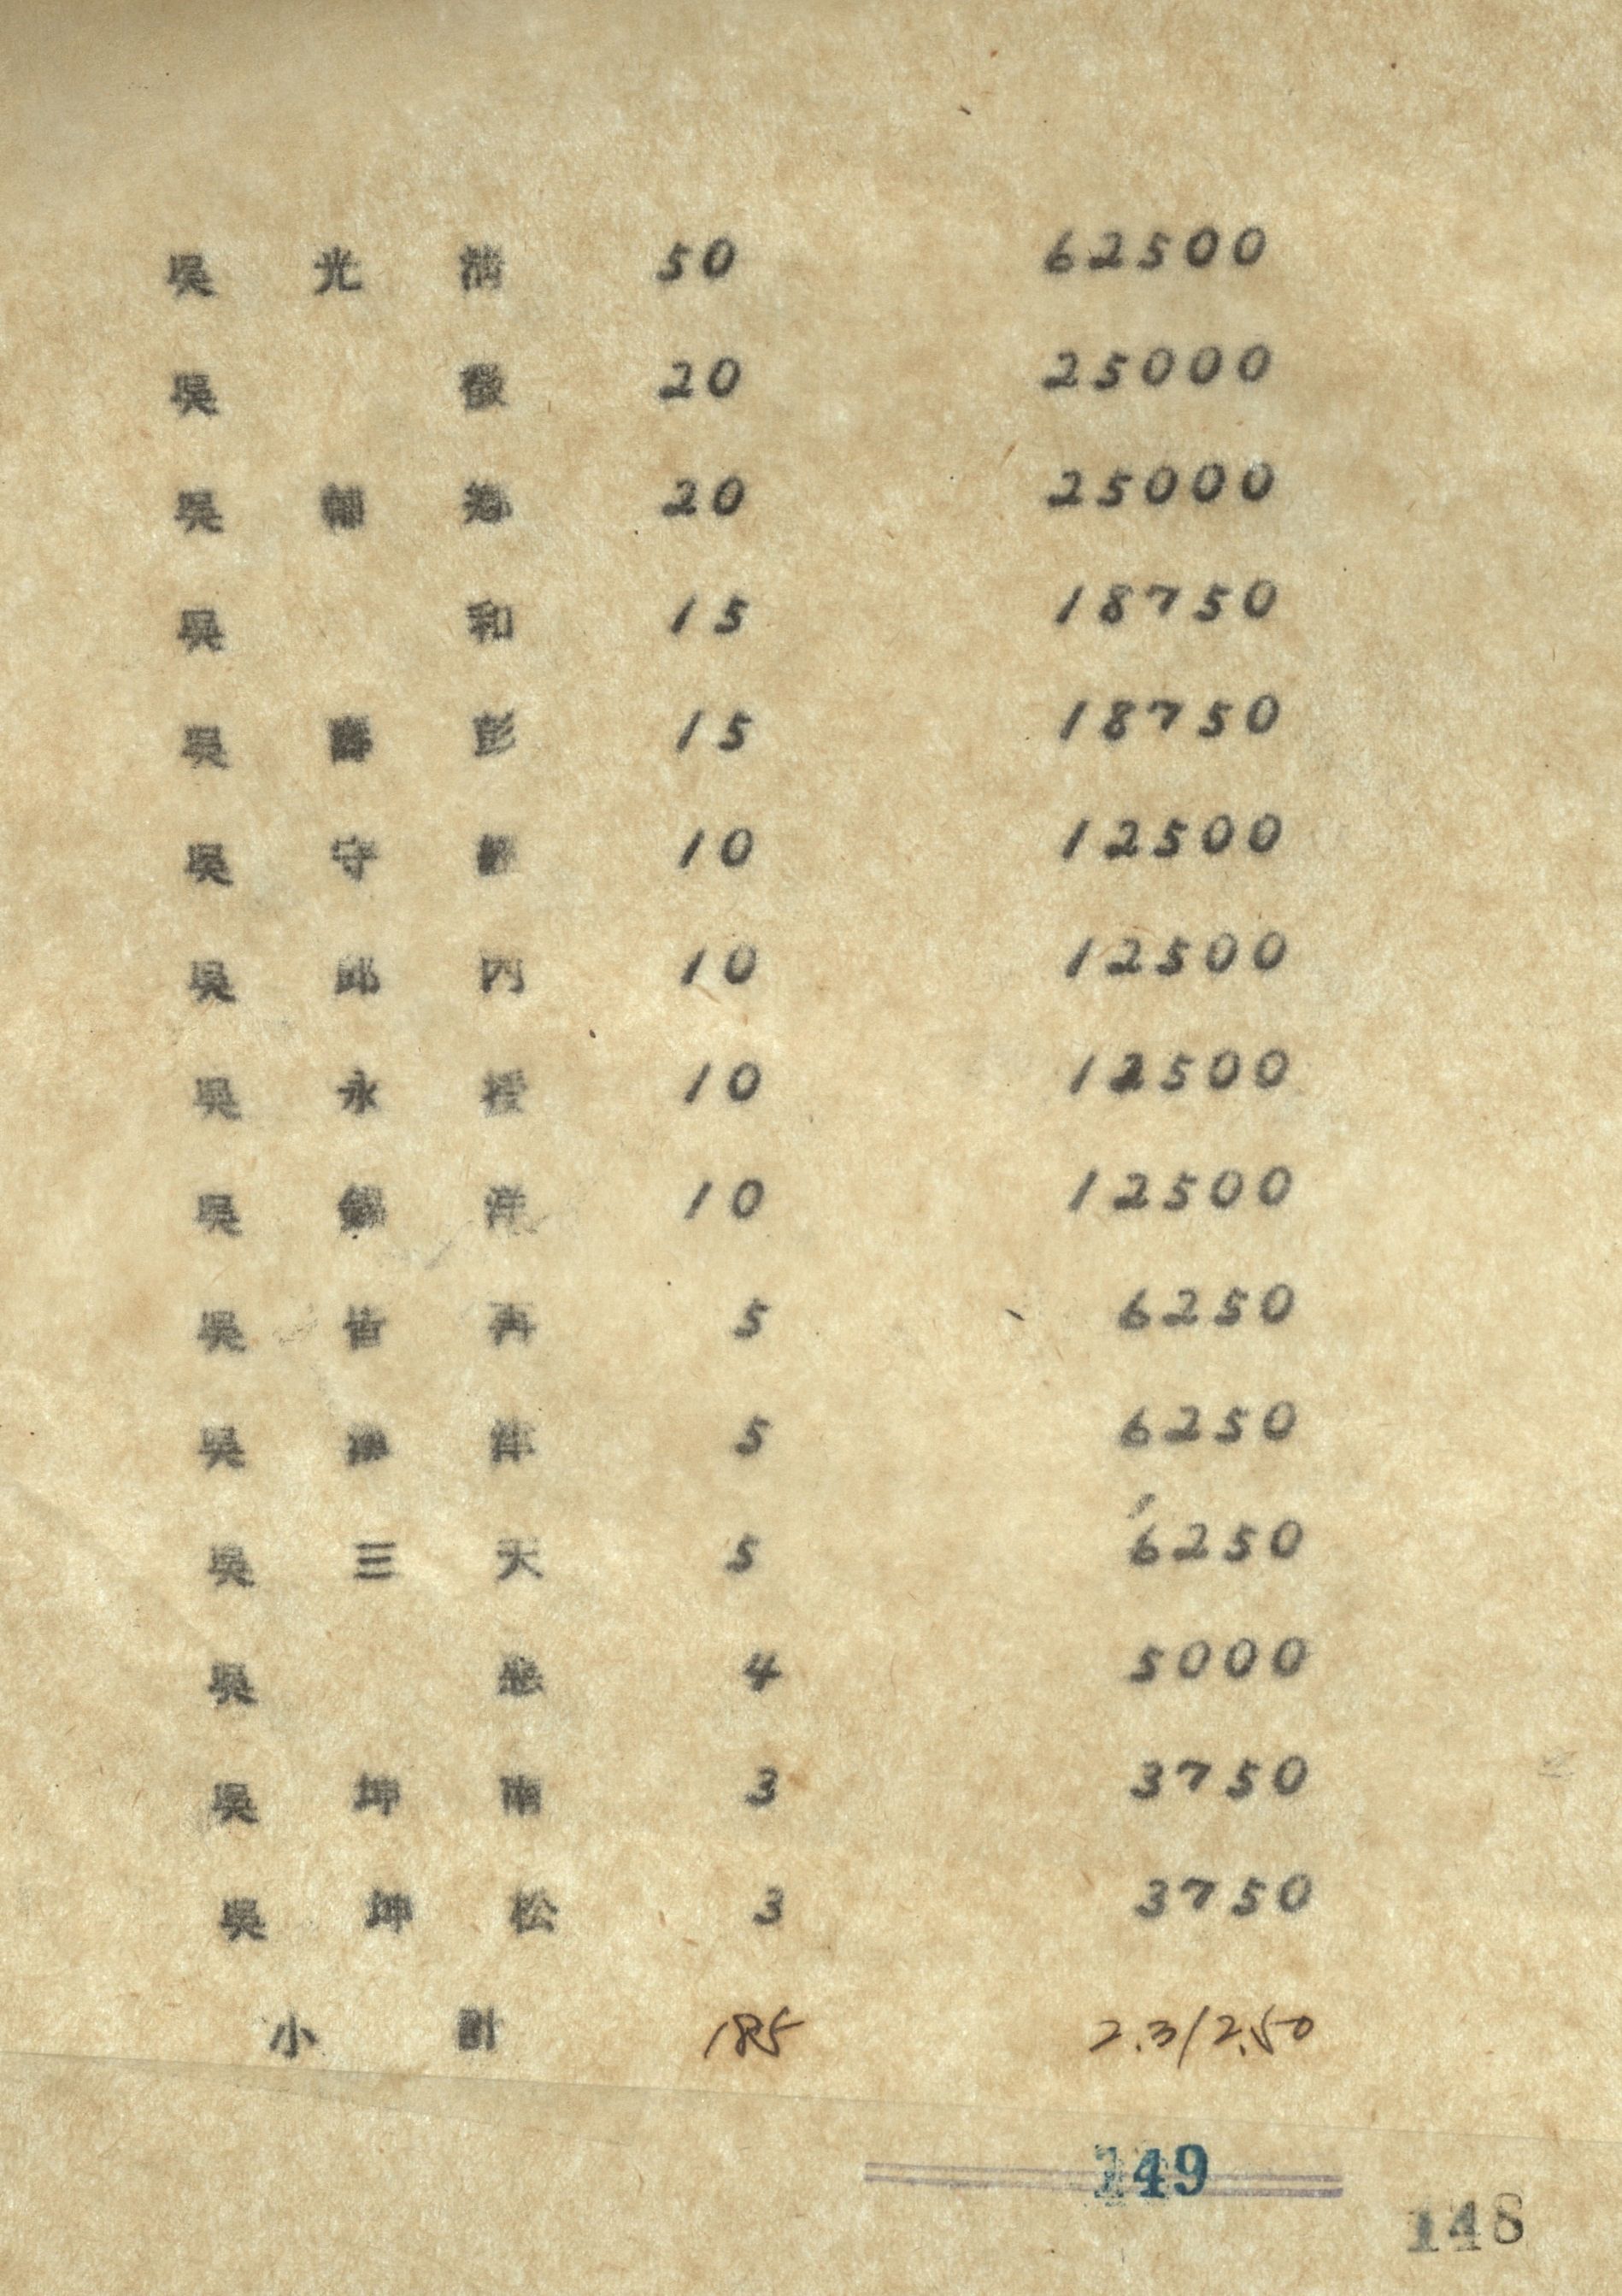 吳光清 50 62500
吳徵 20 25000
吳 20 25000
吳和 15 18750
吳壽彭 15 18750
吳守 10 12500
吳邱丙 10 12500
吳永授 10 12500
吳錫洋 10 12500
吳再 5 6250
吳 5 6250
吳三天 5 6250
吳 4 5000
吳坤南 3 3750
吳坤松 3 3750
小計 185 2.312.50
149
148